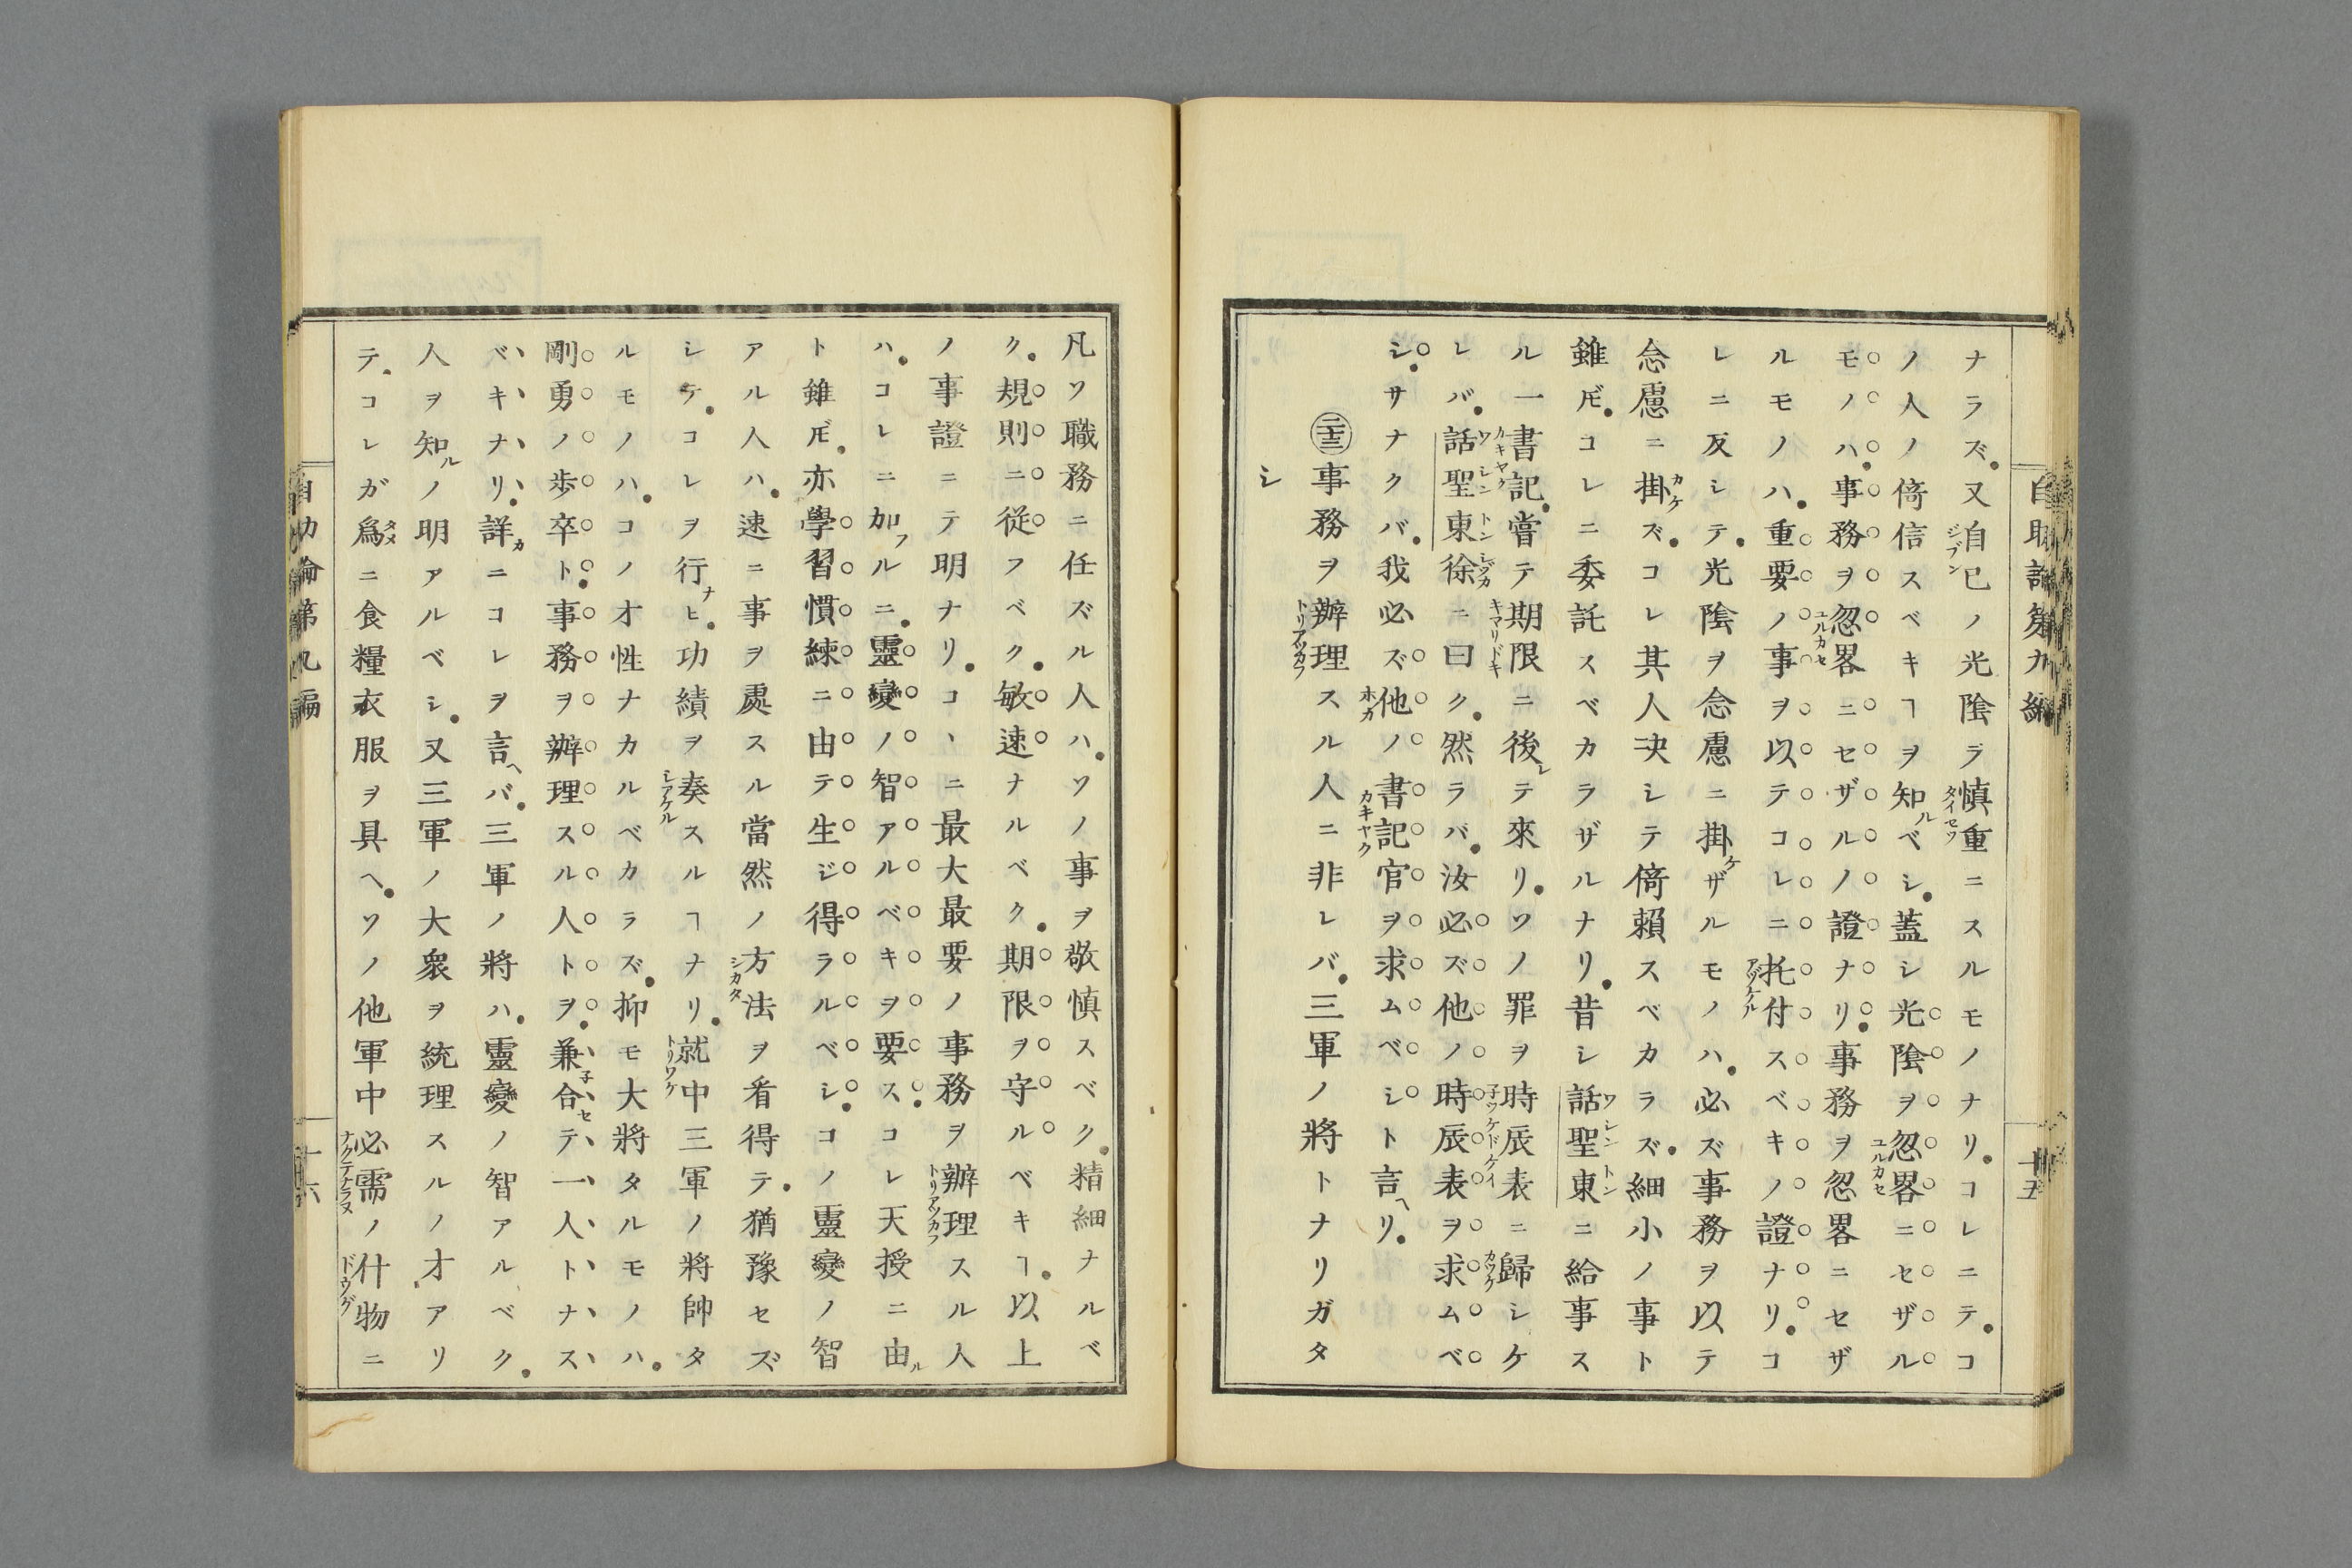 ナラズ。又自己ノ光陰ラ愼重ニスルモノナリ。コレニテ。コ
ノ人ノ倚信スベキヿヲ知ルベシ。蓋シ光陰ヲ忽畧ニセザル
モノハ。事務ヲ忽畧ニセザルノ證ナリ。事務ヲ忽畧ニセザ
ルモノハ。重要ノ事ヲ以テコレニ托付スベキノ證ナリ。コ
レニ反シテ。光陰ヲ念慮ニ掛ケザルモノハ。必ズ事務ヲ以テ
念慮ニ掛ズ。コレ其人决シテ倚賴スベカラズ。細小ノ事ト
雖𪜈。コレニ委託スベカラザルナリ。昔シ話聖東ニ給事ス
ル一書記。嘗テ期限ニ後レテ來リ。ソノ罪ヲ時辰表ニ歸シケ
レバ。話聖東徐ニ曰ク。然ラバ。汝必ズ他ノ時辰表ヲ求ムベ
シ。サナクバ。我必ズ他ノ書記官ヲ求ムベシト言ヘリ。
㊂事務ヲ辦理スル人ニ非レバ。三軍ノ將トナリガタ
シ
自助論第九編
十五
凡ソ職務ニ任ズル人ハ。ソノ事ヲ敬愼スベク。精細ナルベ
ク。規則ニ從フベク。敏速ナルベク。期限ヲ守ルベキヿ。以上
ノ事證ニテ明ナリ。コヽニ最大最要ノ事務ヲ辦理スル人
ハ。コレニ加フルニ。靈變ノ智アルベキヲ要ス。コレ天授ニ由ル
ト雖𪜈。亦學習慣練ニ由テ生ジ得ラルベシ。コノ靈變ノ智
アル人ハ。速ニ事ヲ處スル當然ノ方法ヲ看得テ。猶豫セズ
シテ。コレヲ行ナヒ。功績ヲ奏スルヿナリ。就中三軍ノ將帥タ
ルモノハ。コノ才性ナカルベカラズ。抑モ大將タルモノハ。
剛勇ノ歩卒ト。事務ヲ辦理スル人トヲ。兼子合セテ一人トナス
ベキナリ。詳カニコレヲ言ヘバ。三軍ノ將ハ。靈變ノ智アルベク。
人ヲ知ルノ明アルベシ。又三軍ノ大衆ヲ統理スルノ才アリ
テ。コレガ爲ニ食糧衣服ヲ具ヘ。ソノ他軍中必需ノ什物ニ
自助論第九編
十六